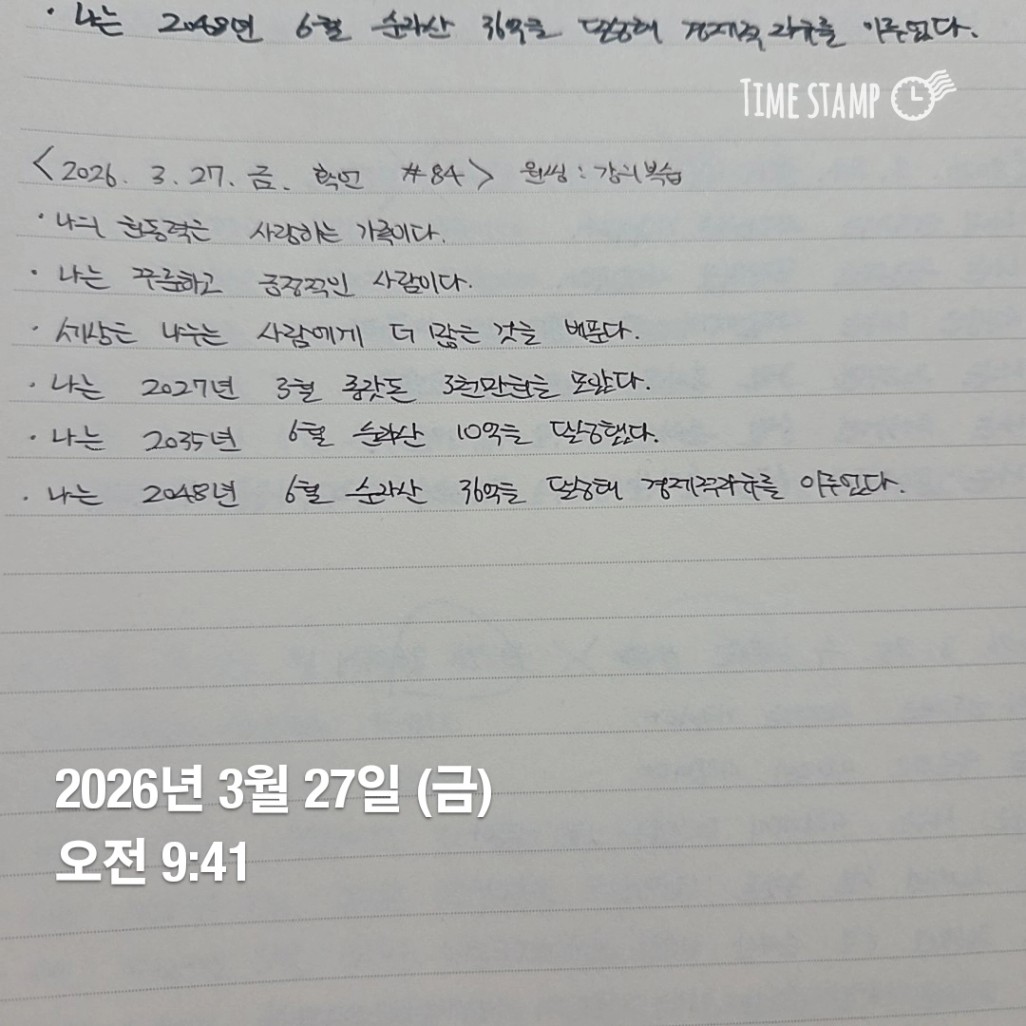 · 나는 2048년 6월 순자산 36억을 달성해 경제적 자유를 이루었다.
TIME STAMP
<2026. 3. 27. 금. 확언 #84> 원씽 : 강의복습
· 나의 원동력은 사랑하는 가족이다.
· 나는 꾸준하고 긍정적인 사람이다.
· 세상은 나누는 사람에게 더 많은 것을 베푼다.
· 나는 2027년 3월 종잣돈 3천만원을 모았다.
· 나는 2035년 6월 순자산 10억을 달성했다.
· 나는 2048년 6월 순자산 36억을 달성해 경제적자유를 이루었다.
2026년 3월 27일 (금)
오전 9:41